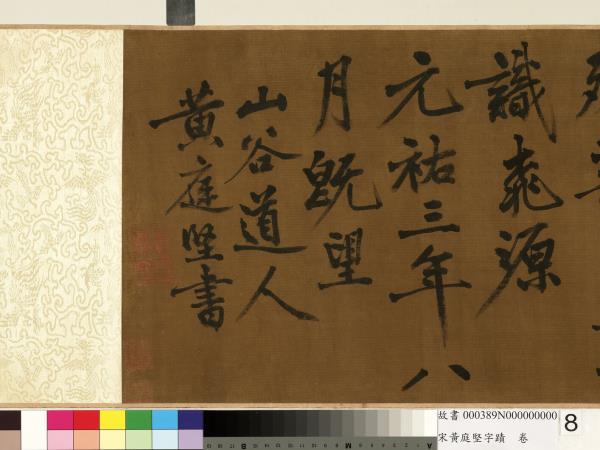 識桃源
元祐三年八
月既望
山谷道人
黃庭堅書
故書 000389N000000000
8
宋黃庭堅字蹟 卷